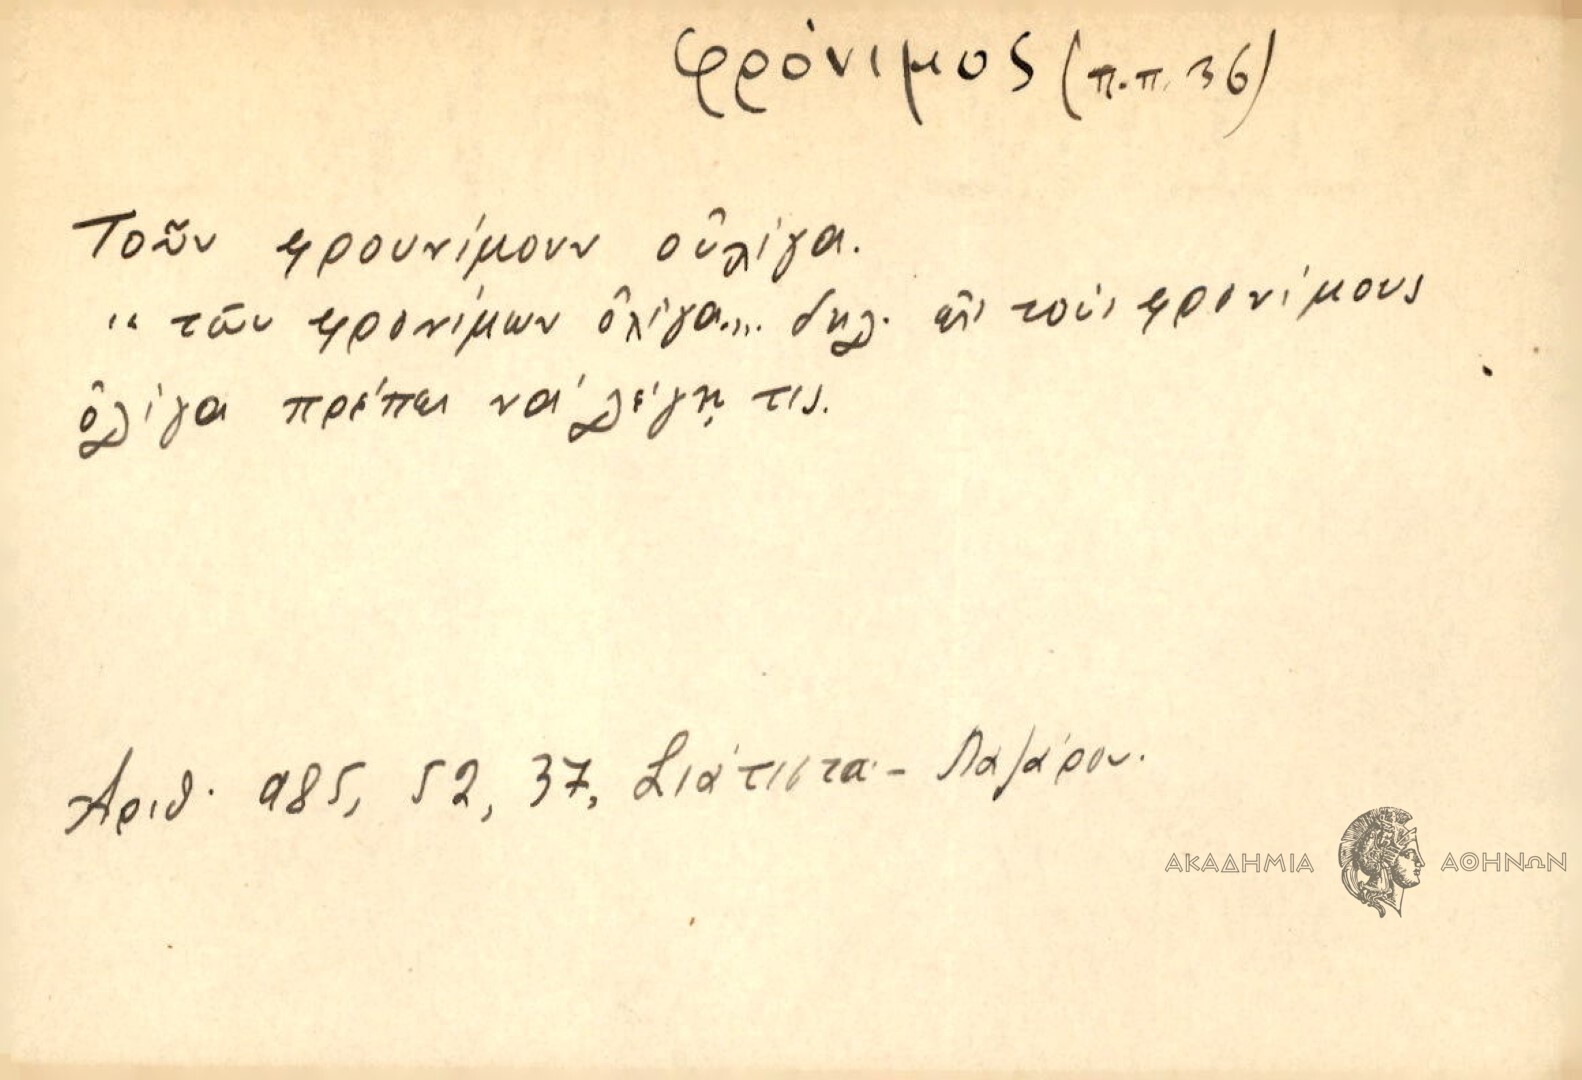 φρόνιμος (π.π. 36)
Τοῦν φρουνίμουν οὐλίγα.
" τῶν φρονίμων ὀλίγα... δηλ. εἰς τοὺς φρονίμους
ὀλίγα πρέπει νὰ λέγῃ τις.
Ἀριθ. 985, 52, 37, Σιάτιστα - Λαζάρου.
ΑΚΑΔΗΜΙΑ ΑΘΗΝΩΝ